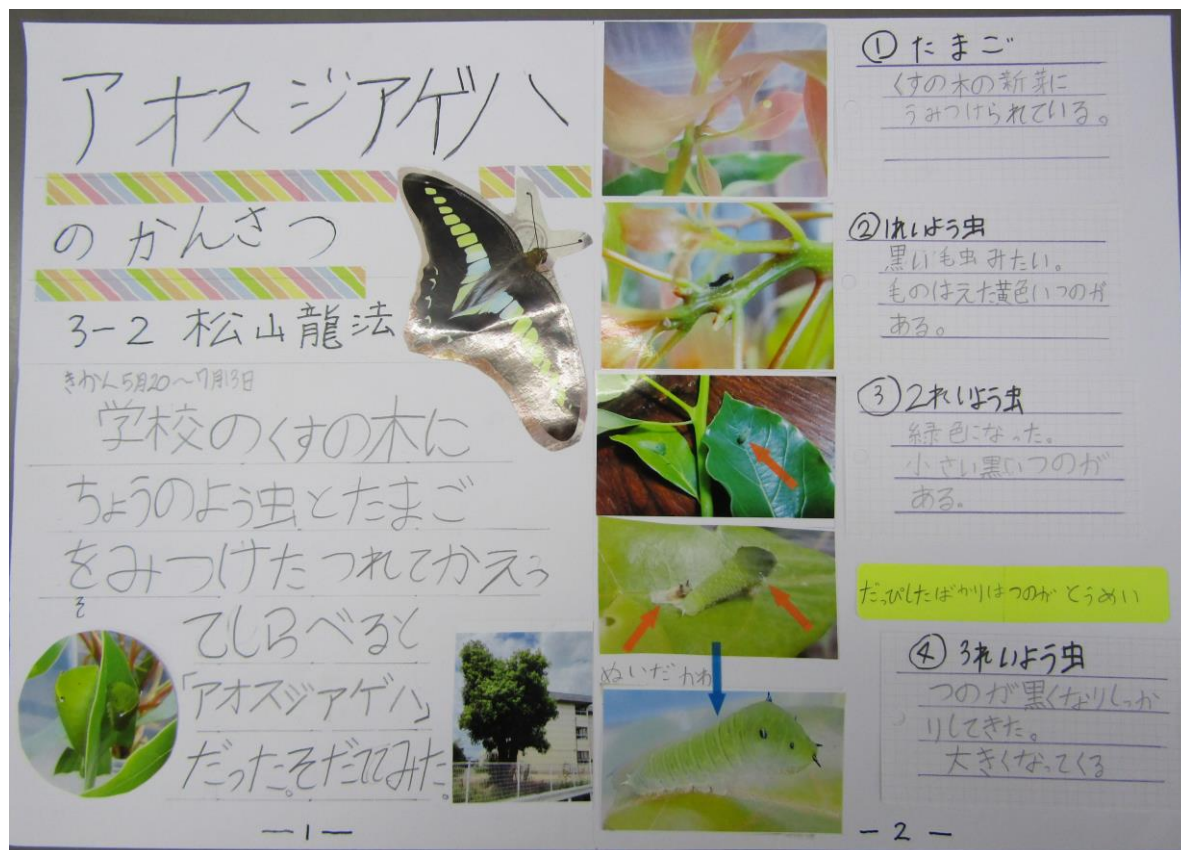 アオスジアゲハ
のかんさつ
3-2 松山龍法
きかん5月20～7月13日
学校のくすの木に
ちょうのよう虫とたまご
をみつけたつれてかえっ
そ
てしらべると
「アオスジアゲハ」
だった。そだててみた。
-1-
①たまご
くすの木の新芽に
うみつけられている。
②1れいよう虫
黒い毛虫みたい。
毛のはえた黄色いつのが
ある。
③2れいよう虫
緑色になった。
小さい黒いつのが
ある。
だっぴしたばかりはつのがとうめい
ぬいだかわ
④3れいよう虫
つのが黒くなりしっか
りしてきた。
大きくなってくる
-2-